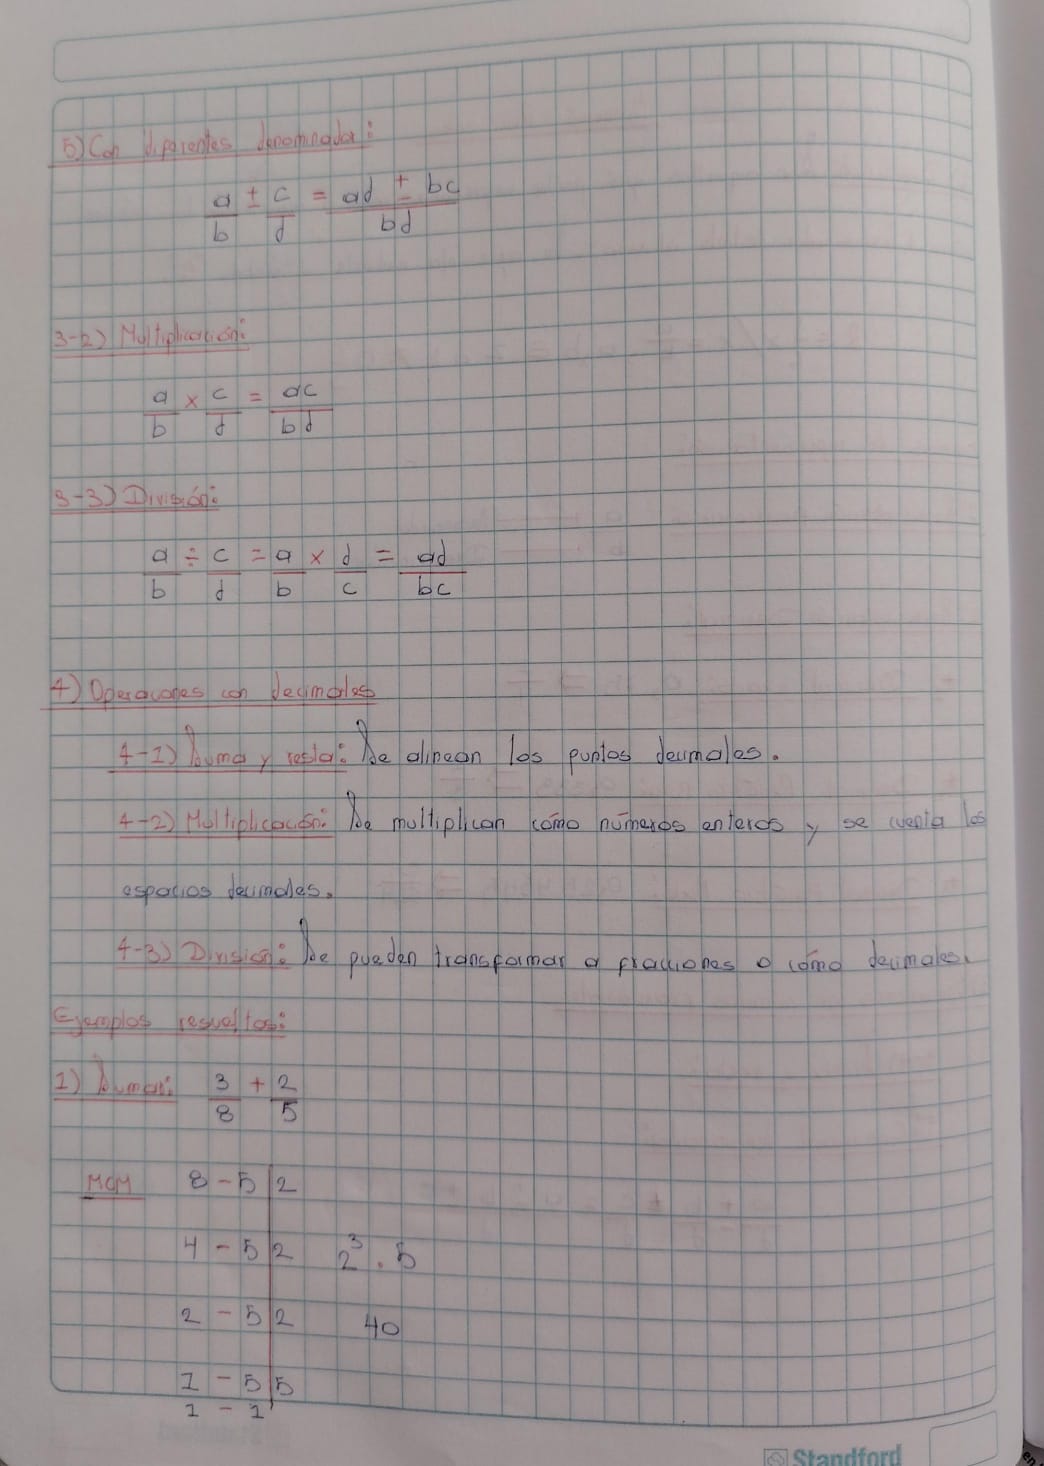 5) Con diferentes denominador:
a/b ± c/d = ad ± bc/bd
3-2) Multiplicación:
a/b × c/d = ac/bd
3-3) División:
a/b ÷ c/d = a/b × d/c = ad/bc
4) Operaciones con decimales
4-1) Suma y resta: Se alinean los puntos decimales.
4-2) Multiplicación: Se multiplican cómo números enteros y se cuenta los
espacios decimales.
4-3) División: Se pueden transformar a fracciones o cómo decimales.
Ejemplos resueltos:
1) Sumar: 3/8 + 2/5
MCM 8 - 5 | 2
4 - 5 | 2 2³ . 5
2 - 5 | 2 40
1 - 5 | 5
1 - 1
Standford